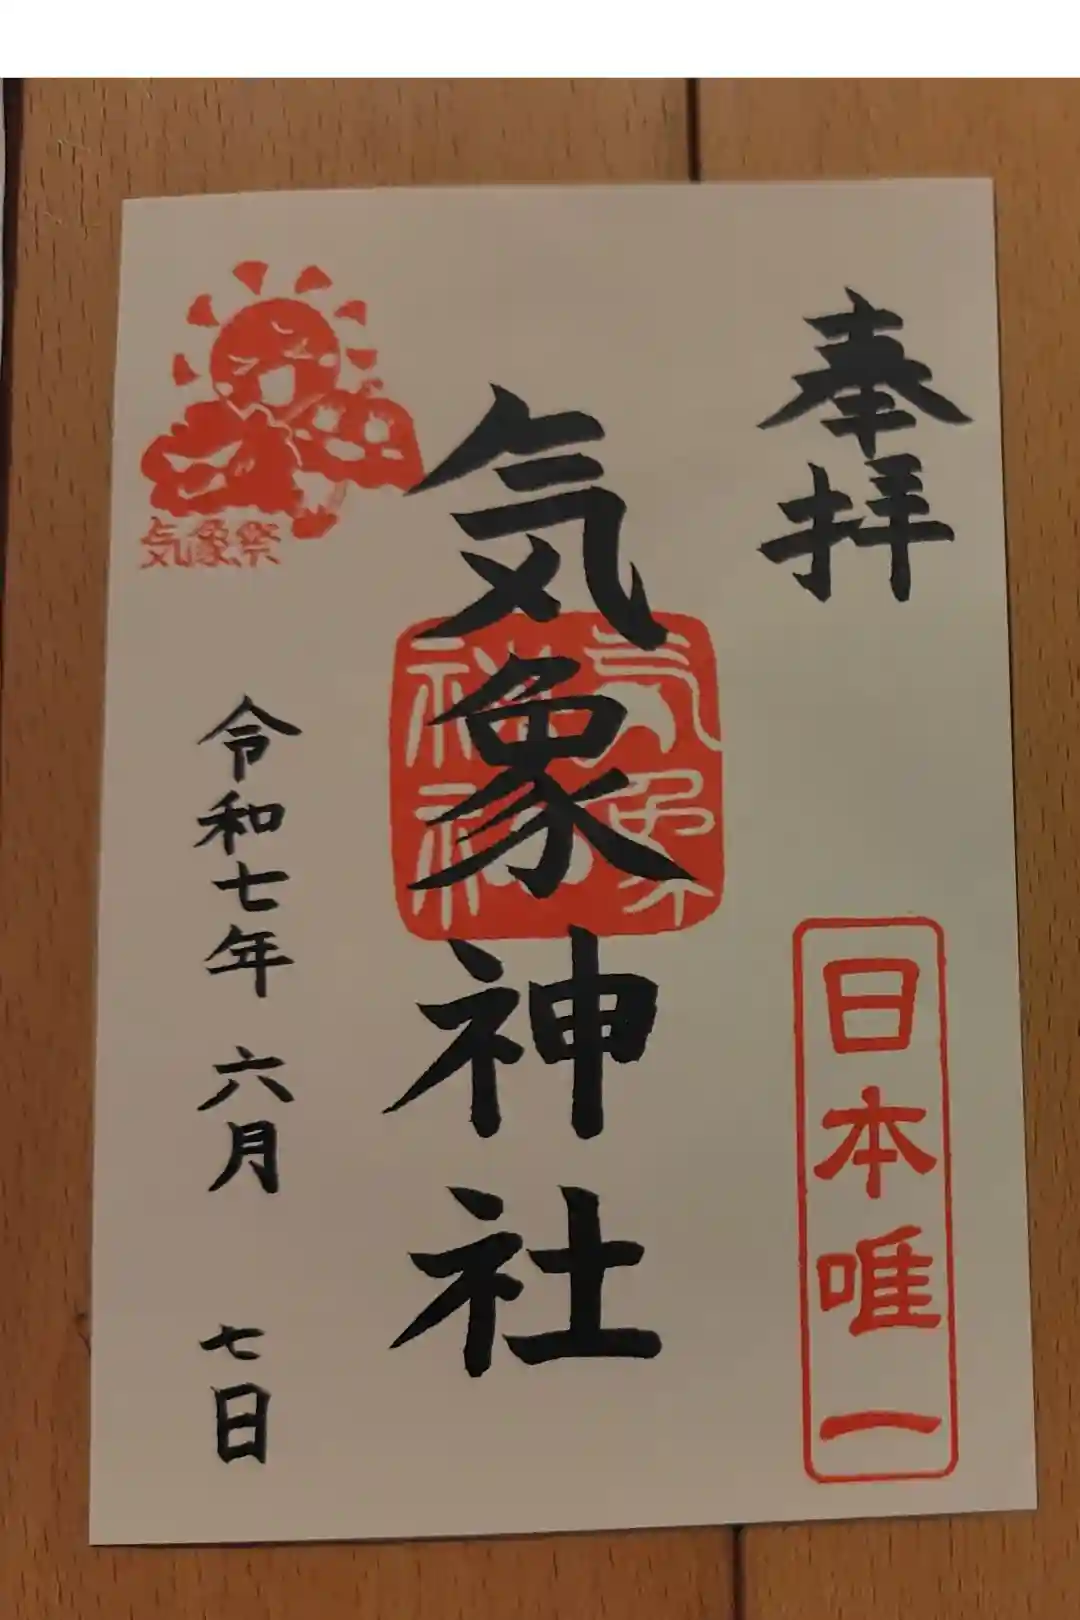 奉拝
日本唯一
気象神社
気象
神社
気象祭
令和七年 六月 七日